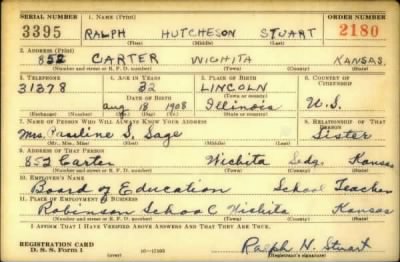 SERIAL NUMBER 1. NAME (Print) ORDER NUMBER
3395 RALPH HUTCHESON STUART 2180
(First) (Middle) (Last)
2. ADDRESS (Print)
852 CARTER WICHITA KANSAS.
(Number and street or R. F. D. number) (Town) (County) (State)
3. TELEPHONE 4. AGE IN YEARS 5. PLACE OF BIRTH 6. COUNTRY OF CITIZENSHIP
31378 32 LINCOLN
DATE OF BIRTH (Town or county)
Aug 18 1908 Illinois U.S.
(Exchange) (Number) (Mo.) (Day) (Yr.) (State or country)
7. NAME OF PERSON WHO WILL ALWAYS KNOW YOUR ADDRESS 8. RELATIONSHIP OF THAT PERSON
Mrs. Pauline S. Sage Sister
(Mr., Mrs., Miss) (First) (Middle) (Last)
9. ADDRESS OF THAT PERSON
852 Carter Wichita Sdg. Kansas
(Number and street or R. F. D. number) (Town) (County) (State)
10. EMPLOYER'S NAME
Board of Education School Teacher
11. PLACE OF EMPLOYMENT OR BUSINESS
Robinson School Wichita Kansas
(Number and street or R. F. D. number) (Town) (County) (State)
I AFFIRM THAT I HAVE VERIFIED ABOVE ANSWERS AND THAT THEY ARE TRUE.
REGISTRATION CARD
D. S. S. Form 1 (over) Ralph H. Stuart
(Registrant's signature)